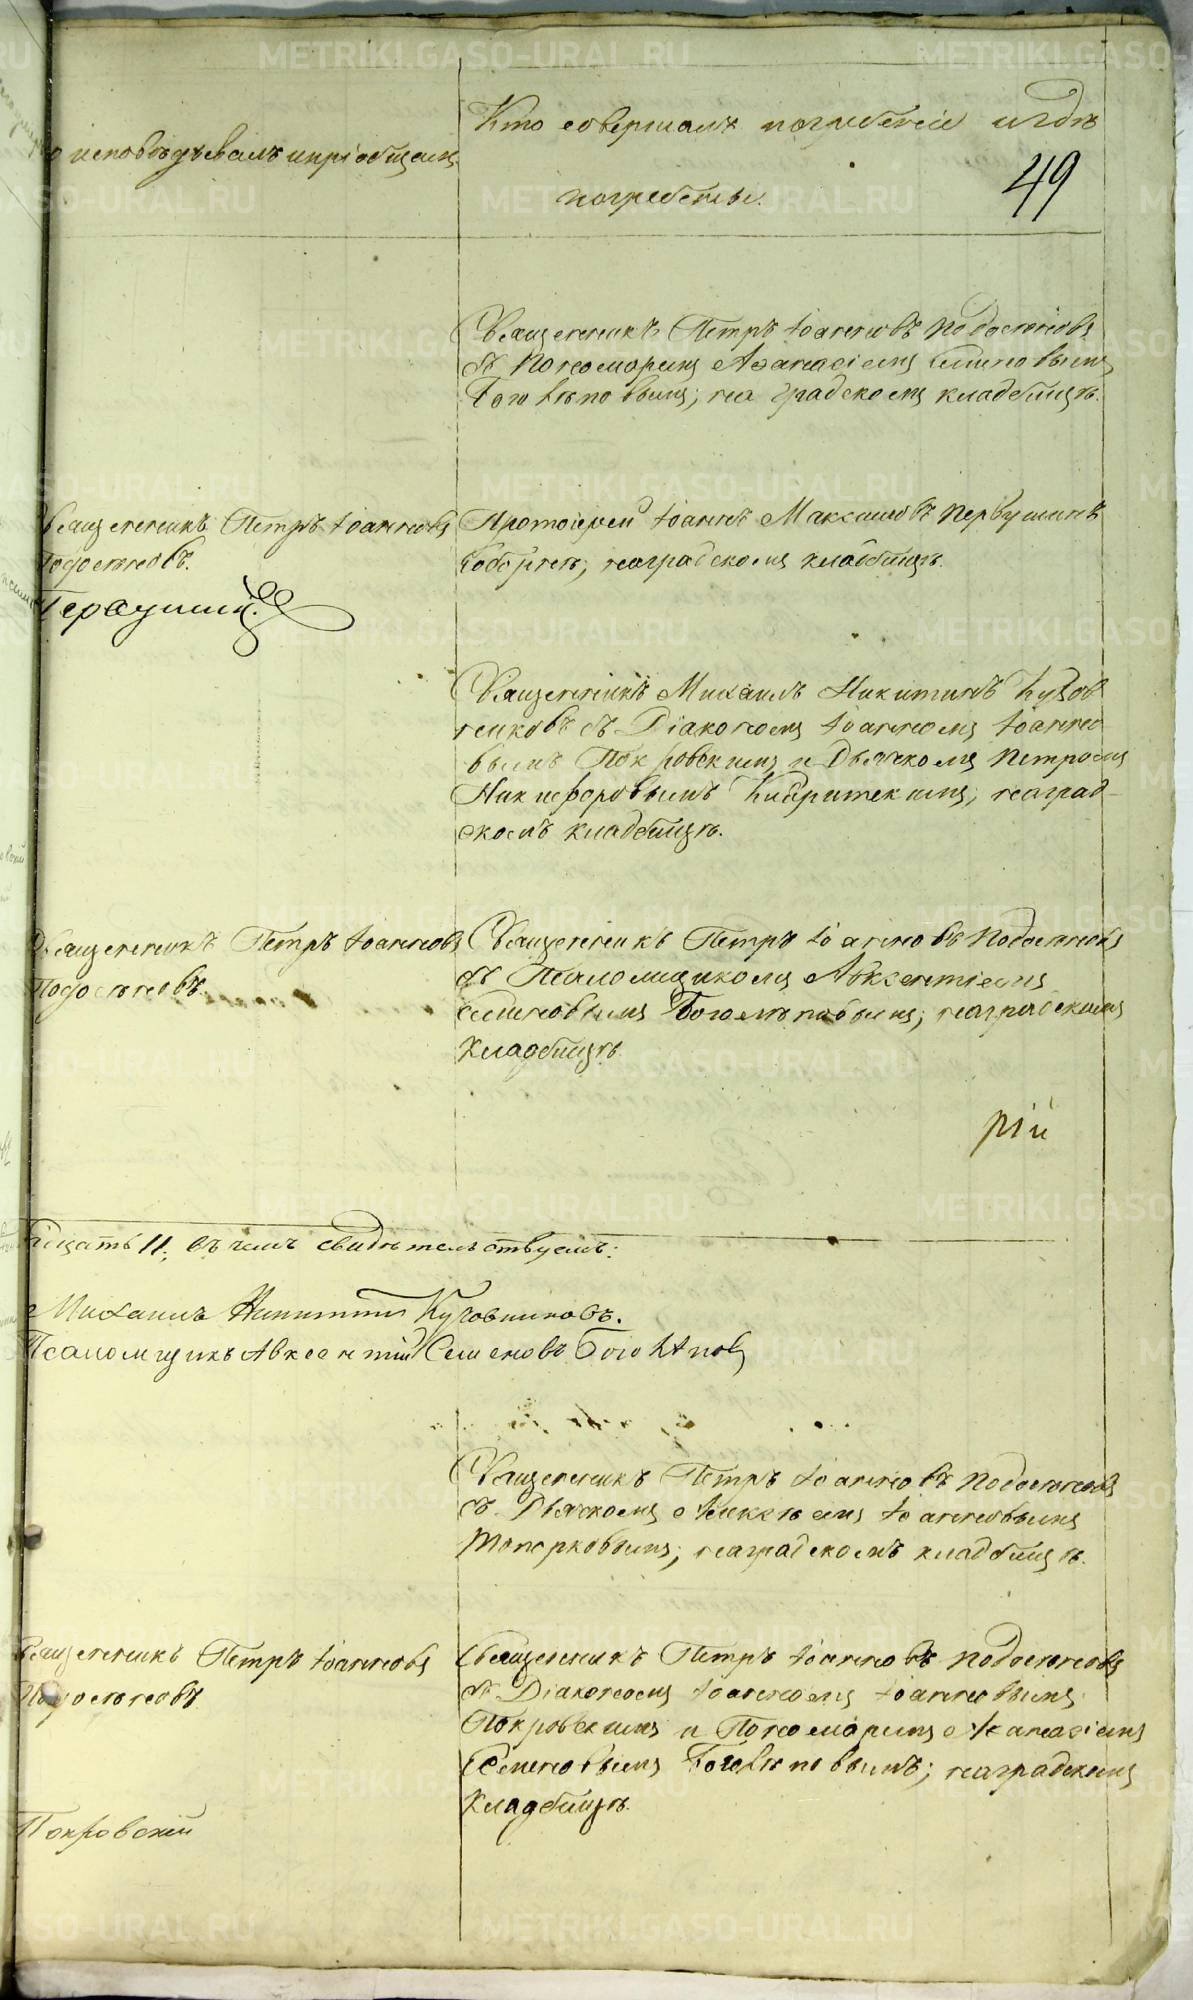 Кто совершалъ погребеніе и гдѣ
исповѣдывалъ и пріобщалъ
погребены.
49
Священникъ Петръ Іоанновъ Подосеновъ
съ Пономаремъ Аѳанасіемъ Семеновымъ
Боголѣповымъ; на градскомъ кладбищѣ.
Священникъ Петръ Іоанновъ
Подосеновъ.
Протоіерей Іоаннъ Максимовъ Первушинъ
соборнѣ; на градскомъ кладбищѣ.
Священникъ Михаилъ Никитинъ Кузов
никовъ съ Діакономъ Іоанномъ Іоанно
вымъ Покровскимъ и Дьячкомъ Петромъ
Никифоровымъ; на град-
скомъ кладбищѣ.
Священникъ Петръ Іоанновъ
Подосеновъ.
Священникъ Петръ Іоанновъ Подосеновъ
съ Псаломщикомъ Авксентіемъ
Семеновымъ Боголѣповымъ; на градскомъ
кладбищѣ.
рій
11; въ чемъ свидѣтельствуемъ:
Михаилъ Никитинъ Кузовниковъ.
Псаломщикъ Авксентій Семеновъ Боголѣповъ
Священникъ Петръ Іоанновъ Подосеновъ
съ Дьячкомъ Алексѣемъ Іоанновымъ
Топорковымъ; на градскомъ кладбищѣ.
Священникъ Петръ Іоанновъ
Подосеновъ.
Священникъ Петръ Іоанновъ Подосеновъ
съ Діакономъ Іоанномъ Іоанновымъ
Покровскимъ и Пономаремъ Аѳанасіемъ
Семеновымъ Боголѣповымъ; на градскомъ
кладбищѣ.
Покровскій
METRIKI.GASO-URAL.RU